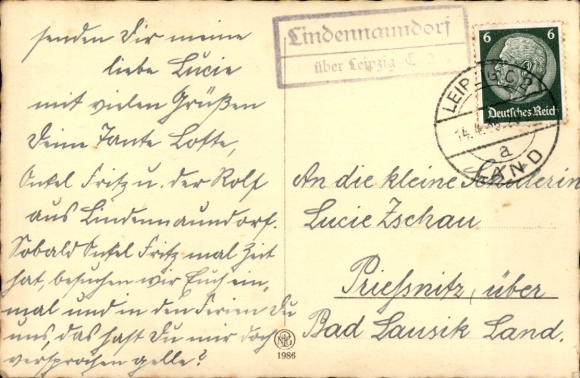 senden Dir meine
liebe Lucie
mit vielen Grüßen
Deine Tante Lotte,
Onkel Fritz u. der Rolf
aus Lindennaundorf.
Sobald Onkel Fritz mal Zeit
hat, besuchen wir Euch ein-
mal und in den Ferien Du
uns, das hast Du mir doch
versprochen gelle?
Lindennaundorf
über Leipzig C 2
6 6
Deutsches Reich
LEIPZIG C 2
14.4.
a
LAND
An die kleine Schülerin
Lucie Zschau
Prießnitz, über
Bad Lausik Land.
1986